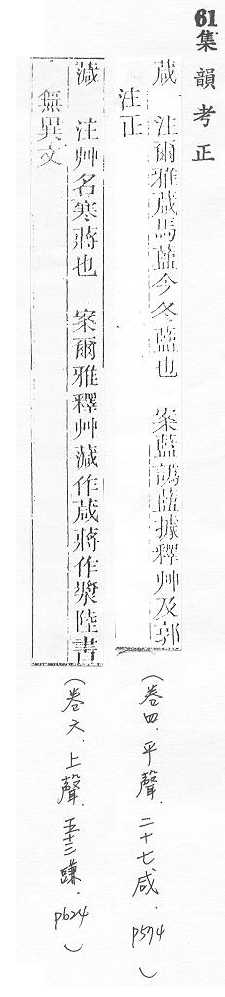 61集韻考正
葴 注爾雅葴馬藍今冬藍也 案藍譌蓝據釋艸及郭
注正
(卷四．平聲．二十七咸．p594)
濊 注艸名寒蔣也 案爾雅釋艸濊作葴蔣作漿陸書
無異文
(卷六．上聲．五十三豏．p624)